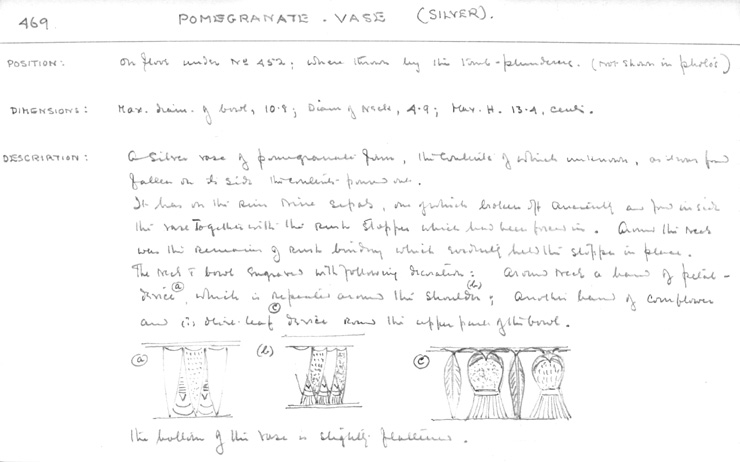 469. POMEGRANATE. VASE (SILVER).
POSITION: On floor under No 452; where thrown by the tomb-plunderers. (Not shown in photo's)
DIMENSIONS: Max. diam. of bowl, 10.8; Diam of Neck, 4.9; Max. H. 13.4, cents.
DESCRIPTION: A silver vase of pomegranate form, the contents of which unknown, as it was found
fallen on its side the contents poured out.
It has on the rim nine sepals, one of which broken off anciently and found inside
the vase together with the rush stopper which had been forced in. Around the neck
was the remains of rush binding which evidently held the stopper in place.
The neck & bowl engraved with following decoration: Around neck a band of petal-
device (a), which is repeated around the shoulder; (b) Another band of cornflower
and olive-leaf (c) device round the upper part of the bowl.
(a) (b) (c)
The bottom of the vase is slightly flattened.